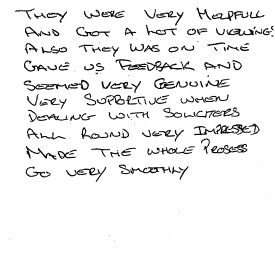 THEY WERE VERY HELPFULL
AND GOT A LOT OF VIEWINGS
ALSO THEY WAS ON TIME
GAVE US FEEDBACK AND
SEEMED VERY GENUINE
VERY SUPORTIVE WHEN
DEALING WITH SOLICITERS
ALL ROUND VERY IMPRESSED
MADE THE WHOLE PROSESS
GO VERY SMOOTHLY